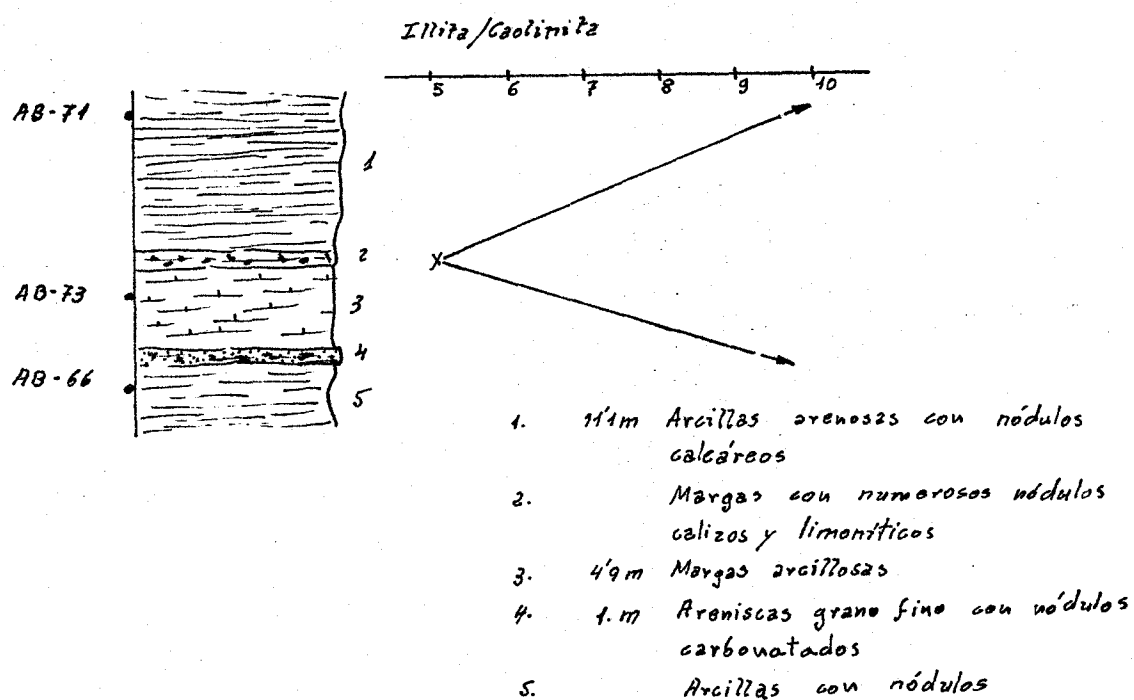 Illita/Caolinita
5 6 7 8 9 10
AB-71
1
2
AB-73
3
4
AB-66
5
1. 11'1m Arcillas arenosas con nódulos
calcáreos
2. Margas con numerosos nódulos
calizos y limoníticos
3. 4'9m Margas arcillosas
4. 1.m Areniscas grano fino con nódulos
carbonatados
5. Arcillas con nódulos